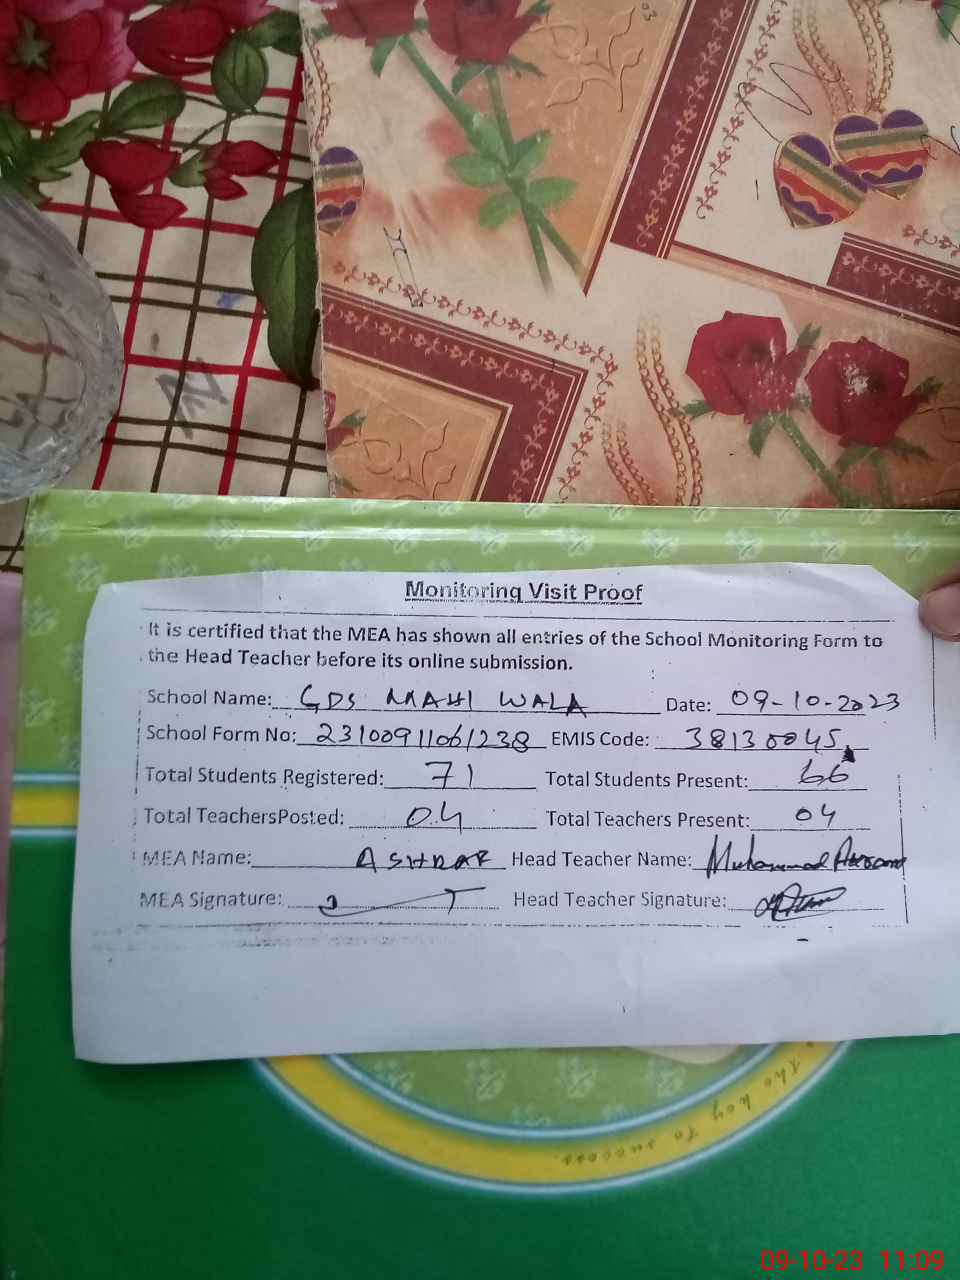 Monitoring Visit Proof
It is certified that the MEA has shown all entries of the School Monitoring Form to
the Head Teacher before its online submission.
School Name: GDS MAHI WALA Date: 09-10-2023
School Form No: 23100911061238 EMIS Code: 38130045
Total Students Registered: 71 Total Students Present: 66
Total TeachersPosted: 04 Total Teachers Present: 04
MEA Name: ASHRAF Head Teacher Name: Muhammad
MEA Signature: Head Teacher Signature:
the key to success.
09-10-23 11:09